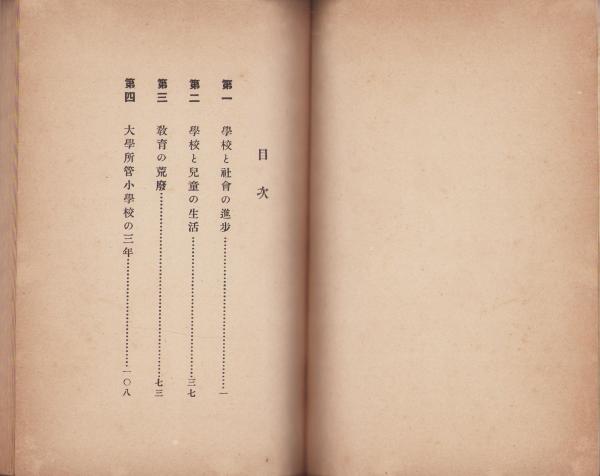 目次
第一 學校と社會の進步……………………一
第二 學校と兒童の生活……………………三七
第三 敎育の荒廢……………………七三
第四 大學所管小學校の三年……………………一〇八